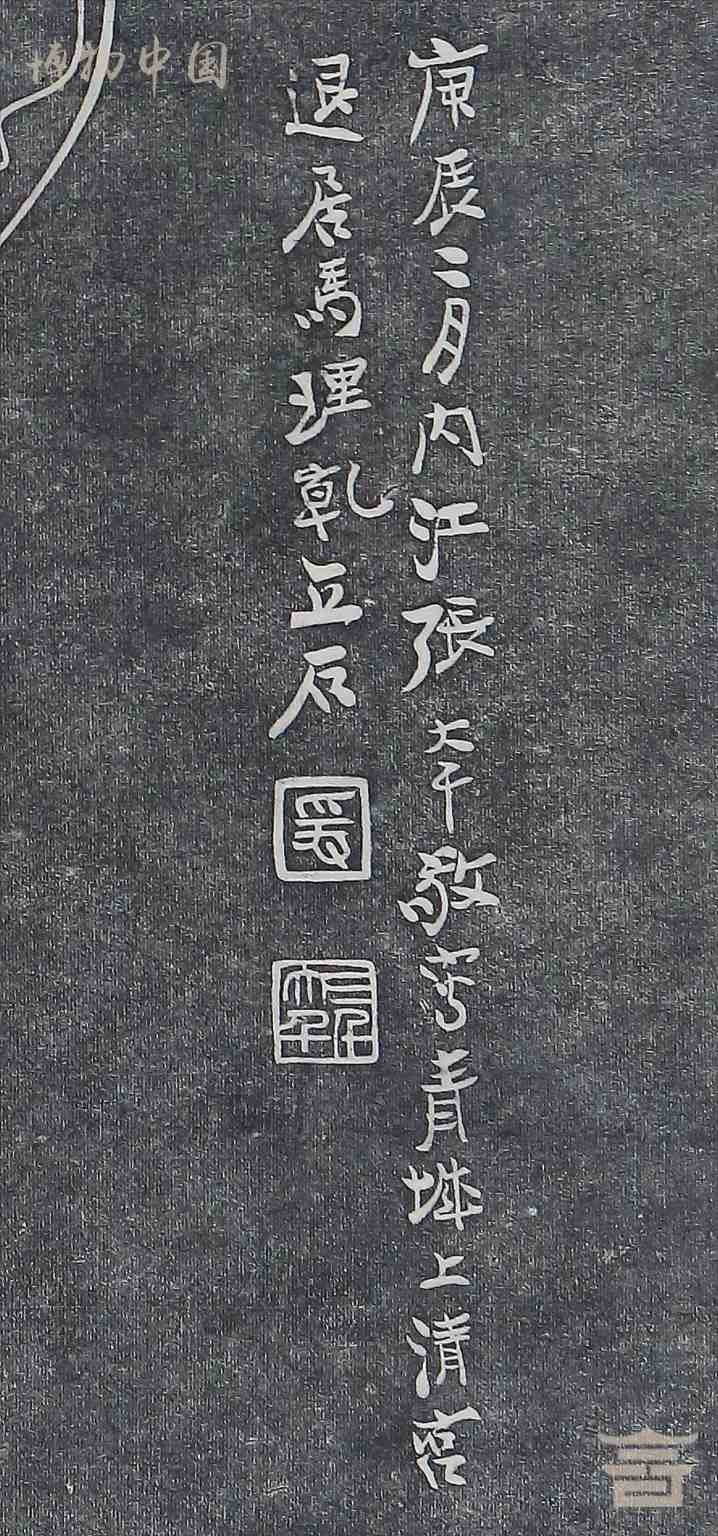 博物中国
庚辰二月内江張大千敬寫青城上清宮
退居馬理乾立石
爰